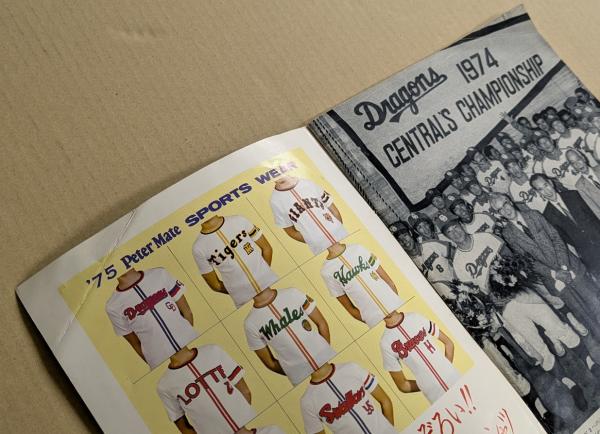 '75 Peter Mate SPORTS WEAR
Dragons
Tigers
GIANTS
LOTTE
Whales
Hawks
Swallows
Braves
H
Dragons 1974
CENTRAL'S CHAMPIONSHIP
Dragons
8